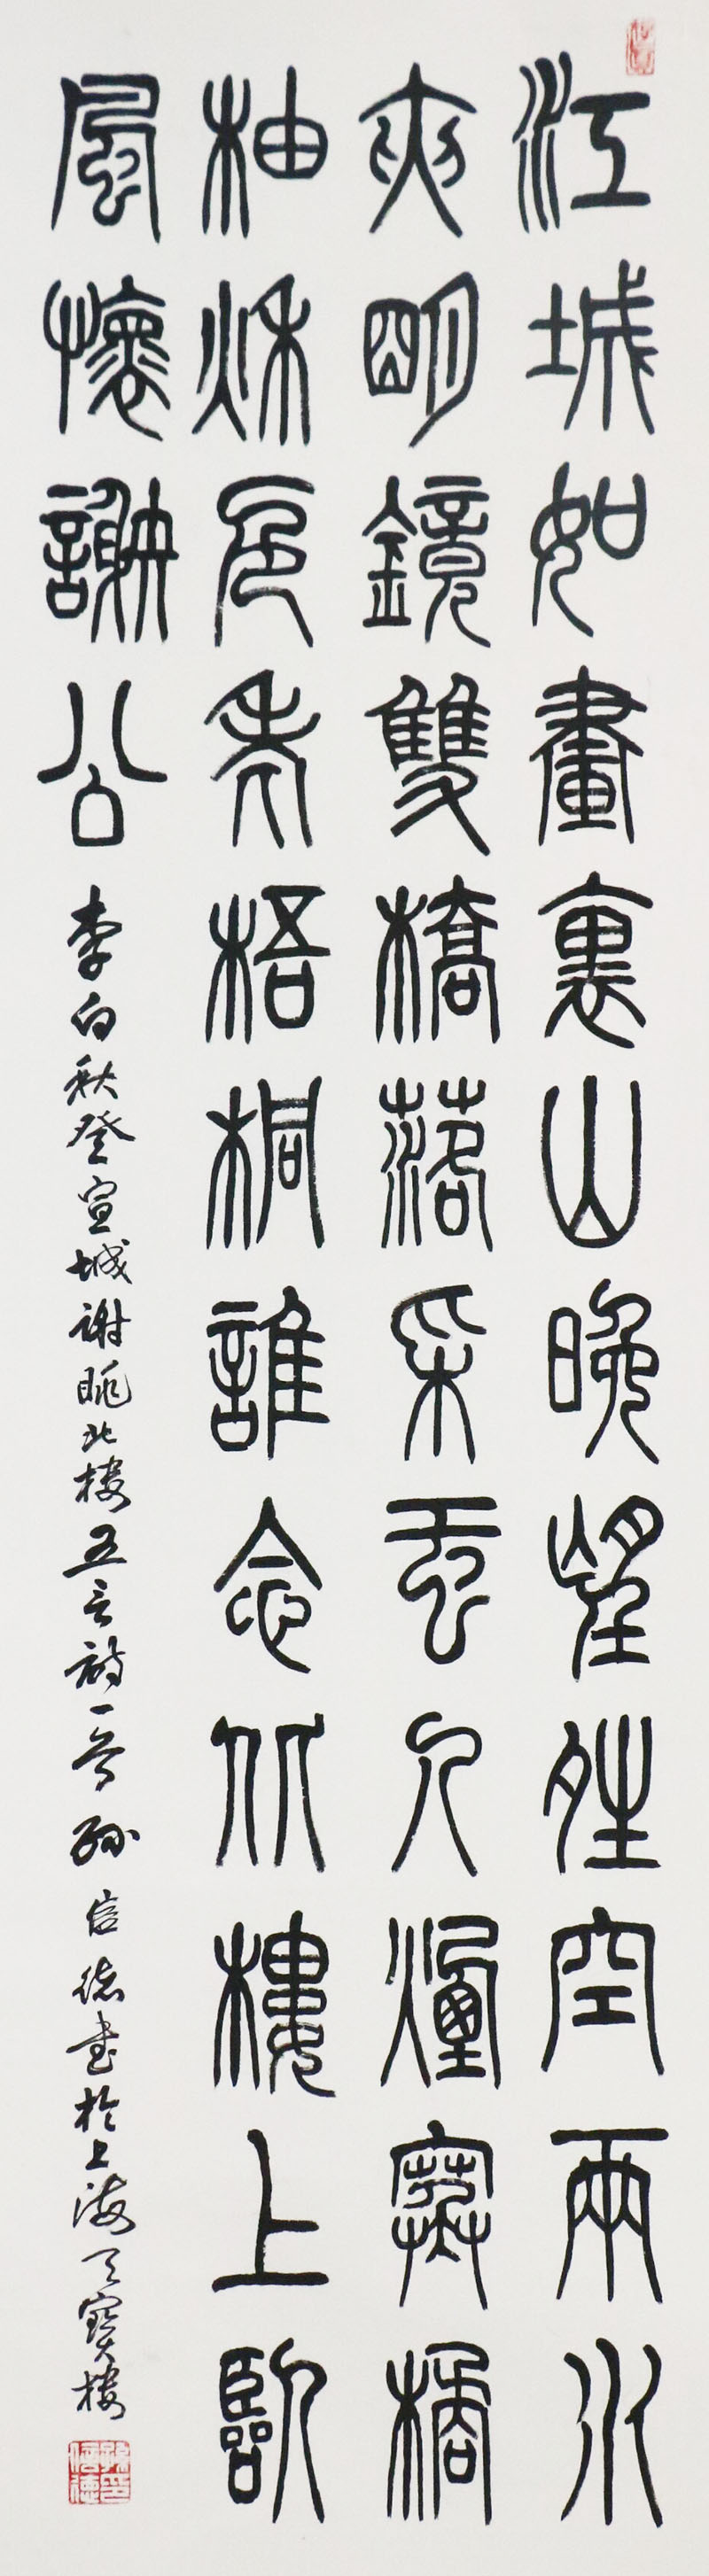 江城如畫裏山晚望晴空兩水
夾明鏡雙橋落采虹人煙寒橘
柚秋色老梧桐誰念北樓上臨
風懷謝公
李白秋登宣城謝朓北樓五言詩一首 孫信德書於上海天寶樓
孫印信德